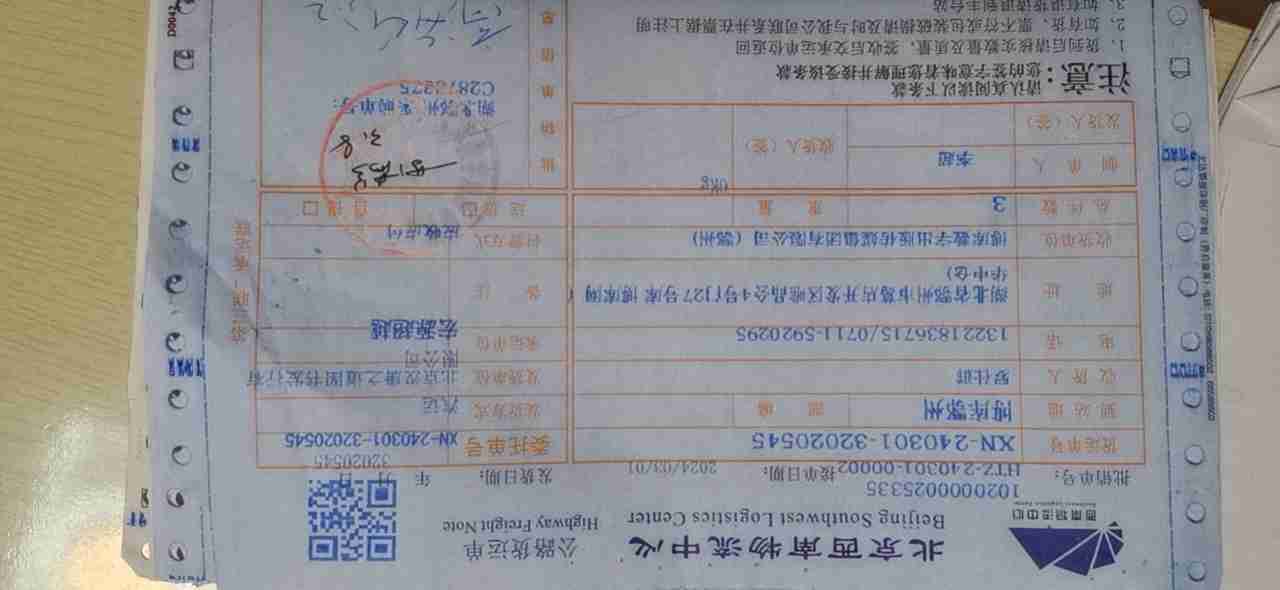 西南物流中心
北京西南物流中心 公路货运单
Beijing Southwest Logistics Center Highway Freight Note
102000000025335
批销单号: HTZ-240301-00002 接单日期: 2024/03/01 发货日期: 年 月 日
32020545
货运单号 XN-240301-32020545 委托单号 XN-240301-32020545
到站地 博库鄂州 部编 发货方式 汽运
收货人 罗仕晖 发货单位 北京汉唐之道图书发行有限公司
电话 13221836715/0711-5920295 承运单位 宏源超越
地址 湖北省鄂州市葛店开发区唯品会4号门27号库 博库网(华中仓) 备注
收货单位 博库数字出版传媒集团有限公司(鄂州) 付费方式 应收应付
总件数 3 重量 0Kg 送货 自提
制单人 李超 收货人(签)
发货人(签)
批销单信息
湖北鄂州, 采购单号:
C2873275
3.8
注意:
请认真阅读以下条款
您的签字意味着您理解并接受该条款
1、货到后请核实数量及质量, 签收后交承运单位返回
2、如有货、票不符或包装破损请及时与我公司联系并在票据上注明
3、如有退货请到丰台站